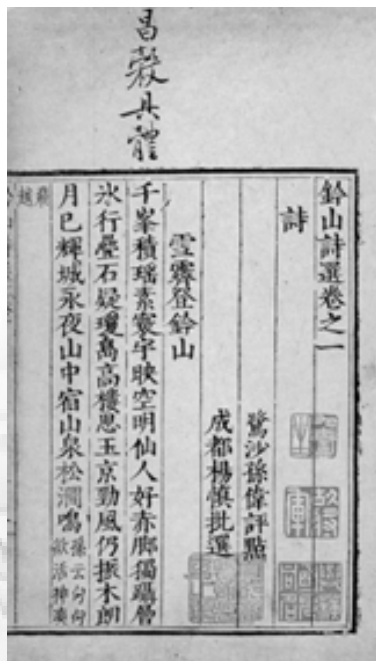 昌穀具體
鈐山詩選卷之一
詩
鷺沙孫偉評點
成都楊慎批選
雪霽登鈐山
千峯積瑶素寰宇映空明仙人好赤腳獨躡曾
氷行疊石疑瓊島高樓思玉京勁風仍振木朗
月已輝城永夜山中宿山泉松澗鳴孫云句句
歛活神爽